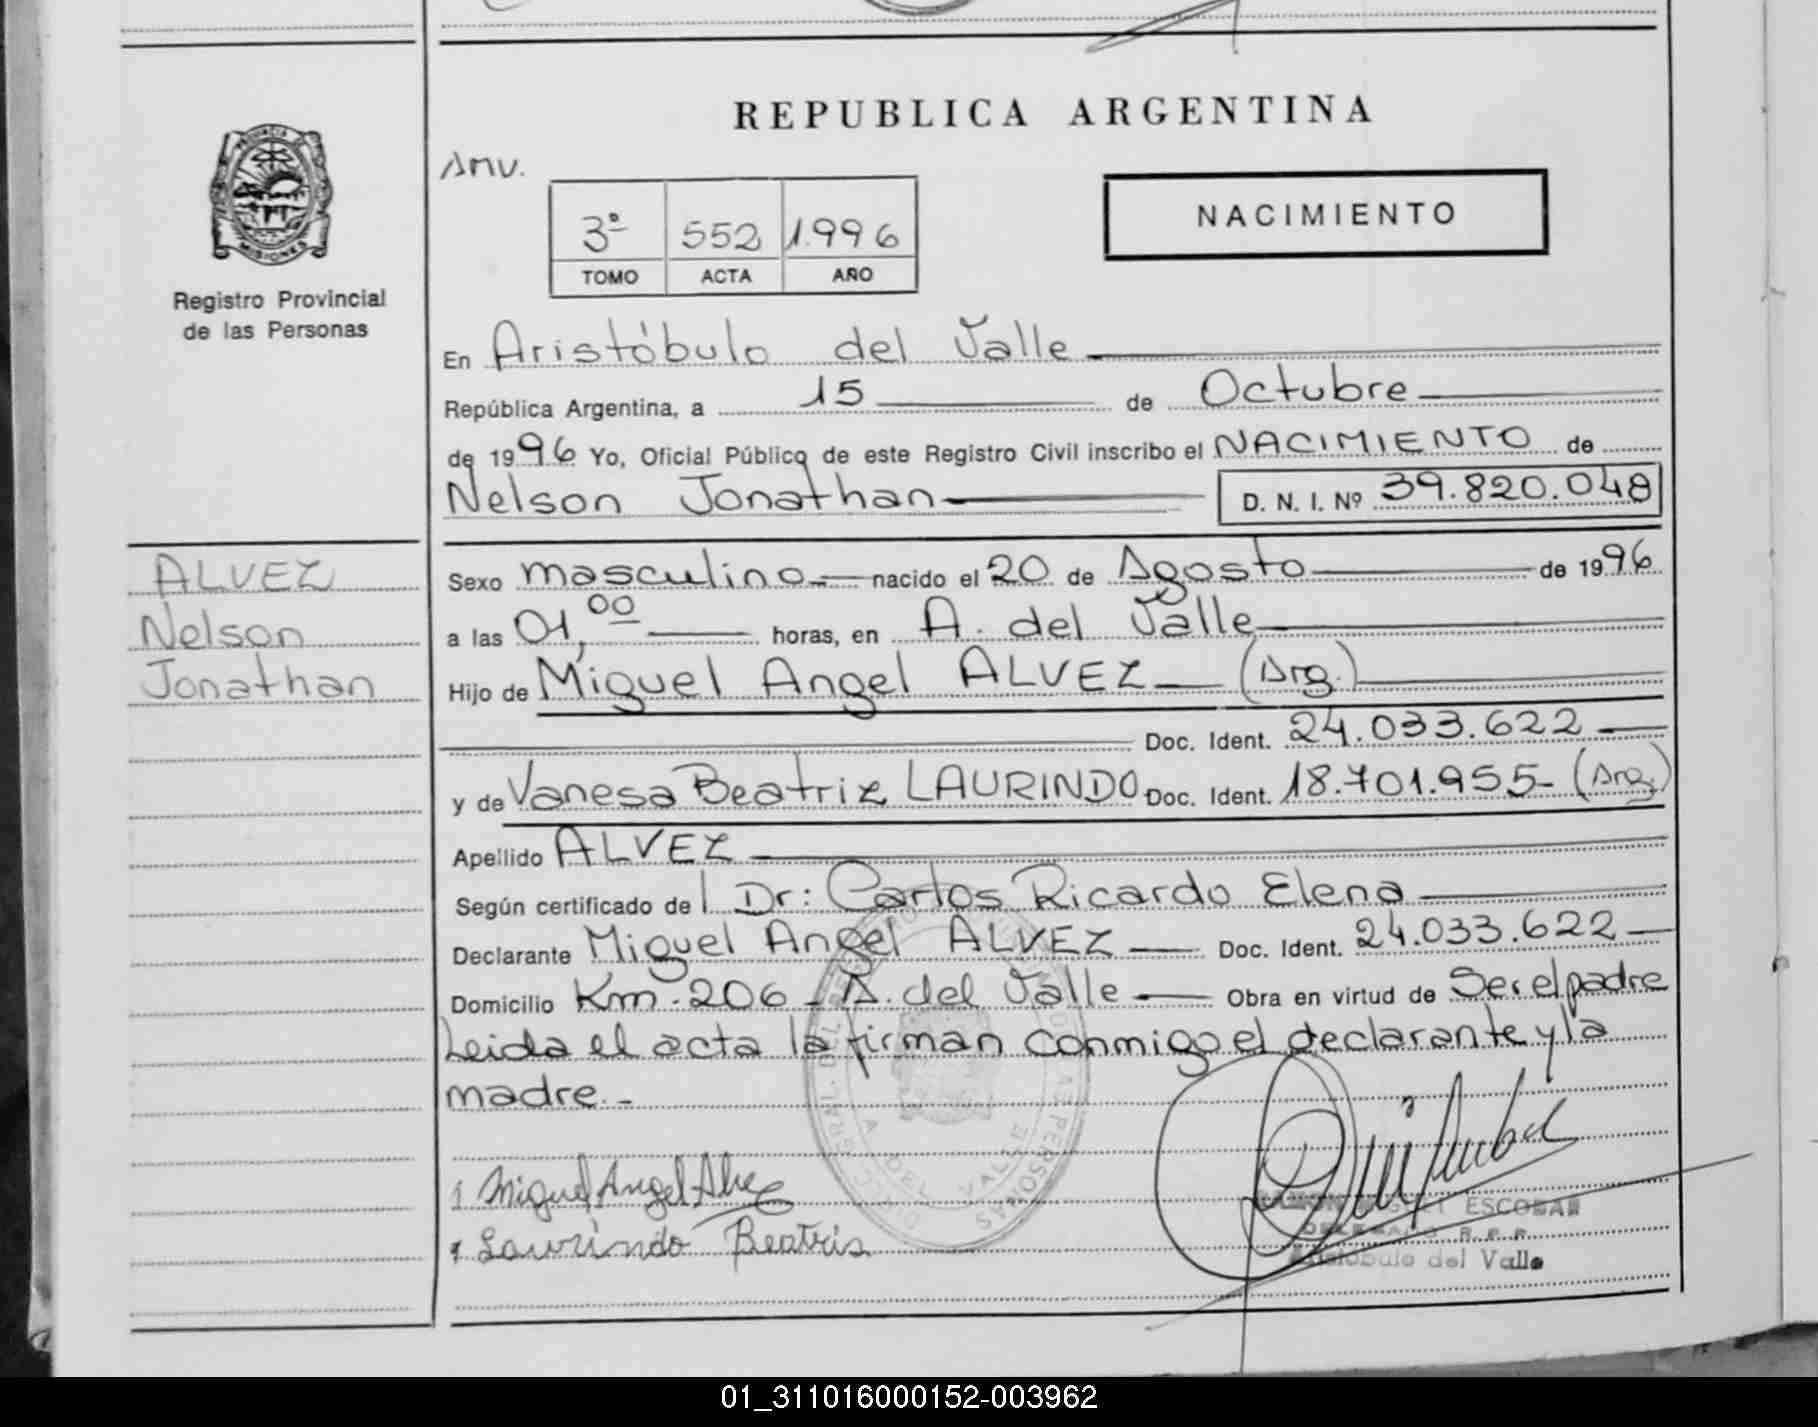 REPUBLICA ARGENTINA
Anv.
3º 552 1.996
TOMO ACTA AÑO
NACIMIENTO
PROVINCIA DE
MISIONES
Registro Provincial
de las Personas
En Aristóbulo del Valle
República Argentina, a 15 de Octubre
de 1996 Yo, Oficial Público de este Registro Civil inscribo el NACIMIENTO de
Nelson Jonathan D. N. I. Nº 39.820.048
ALVEZ
Nelson
Jonathan
Sexo masculino nacido el 20 de Agosto de 1996
a las 01,00 horas, en A. del Valle
Hijo de Miguel Angel ALVEZ (Arg.)
Doc. Ident. 24.033.622
y de Vanesa Beatriz LAURINDO Doc. Ident. 18.701.955- (Arg.)
Apellido ALVEZ
Según certificado del Dr: Carlos Ricardo Elena
Declarante Miguel Angel ALVEZ Doc. Ident. 24.033.622
Domicilio Km. 206 - A. del Valle Obra en virtud de Ser el padre
Leida el acta la firman conmigo el declarante y la
madre.-
Miguel Angel Alvez
Laurindo Beatris
ESCOBAR
DELEGADO R.P.P.
Aristóbulo del Valle
01_311016000152-003962